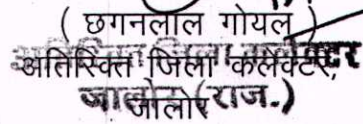 ( छगनलाल गोयल )
अतिरिक्त जिला कलेक्टर,
जालोर (राज.)